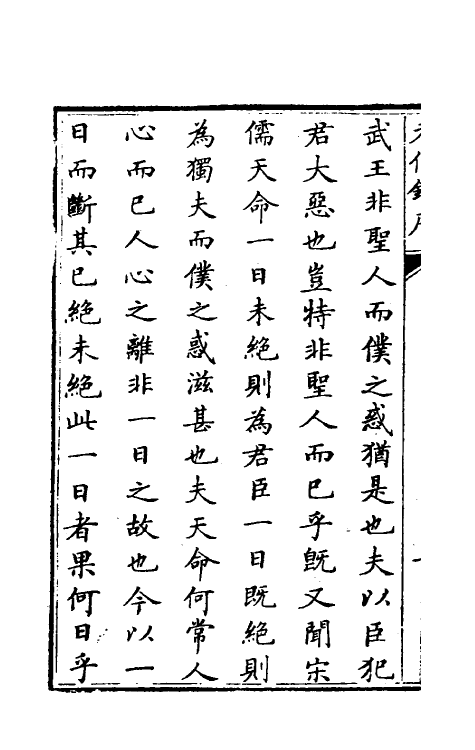 武王非聖人而僕之惑猶是也夫以臣犯
君大惡也豈特非聖人而已乎旣又聞宋
儒天命一日未絕則為君臣一日既絕則
為獨夫而僕之惑滋甚也夫天命何常人
心而已人心之離非一日之故也今以一
日而斷其已絕未絕此一日者果何日乎